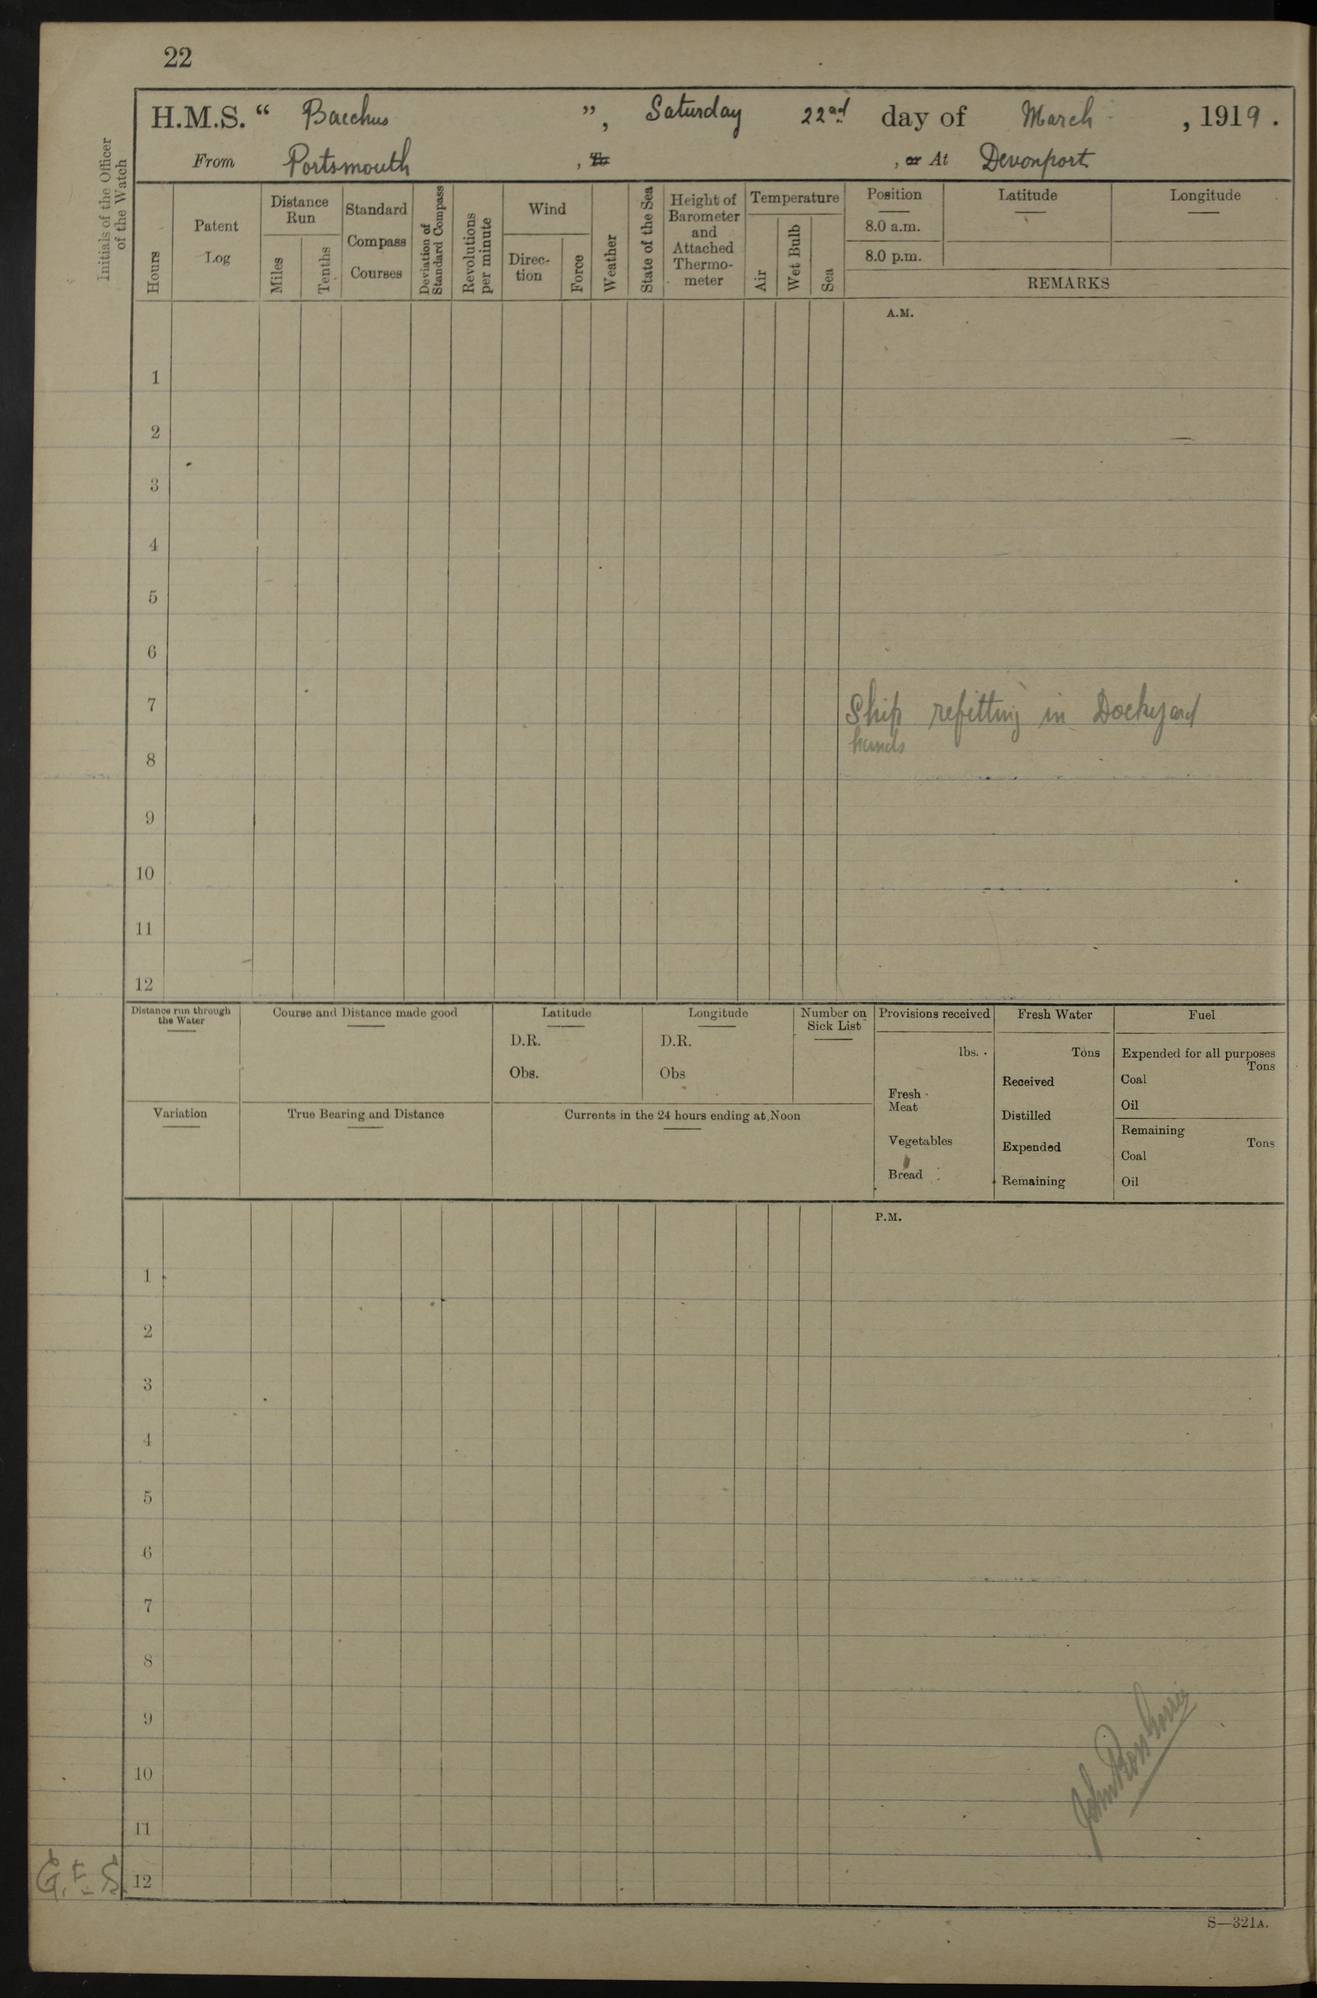 22
H.M.S. “ Bacchus ”, Saturday 22nd day of March , 1919.
From Portsmouth , To , or At Devonport
Initials of the Officer of the Watch
Hours
Patent Log
Distance Run
Miles
Tenths
Standard Compass Courses
Deviation of Standard Compass
Revolutions per minute
Wind
Direc-tion
Force
Weather
State of the Sea
Height of Barometer and Attached Thermo-meter
Temperature
Air
Wet Bulb
Sea
Position
8.0 a.m.
8.0 p.m.
Latitude
Longitude
REMARKS
A.M.
1
2
3
4
5
6
7 Ship refitting in Dockyard
hands
8
9
10
11
12
Distance run through the Water
Course and Distance made good
Latitude
D.R.
Obs.
Longitude
D.R.
Obs
Number on Sick List
Provisions received
lbs.
Fresh Meat
Vegetables
Bread
Fresh Water
Tons
Received
Distilled
Expended
Remaining
Fuel
Expended for all purposes
Tons
Coal
Oil
Remaining
Tons
Coal
Oil
Variation
True Bearing and Distance
Currents in the 24 hours ending at Noon
P.M.
1
2
3
4
5
6
7
8
9
10
11
12
G.E.S.
John
S—321A.